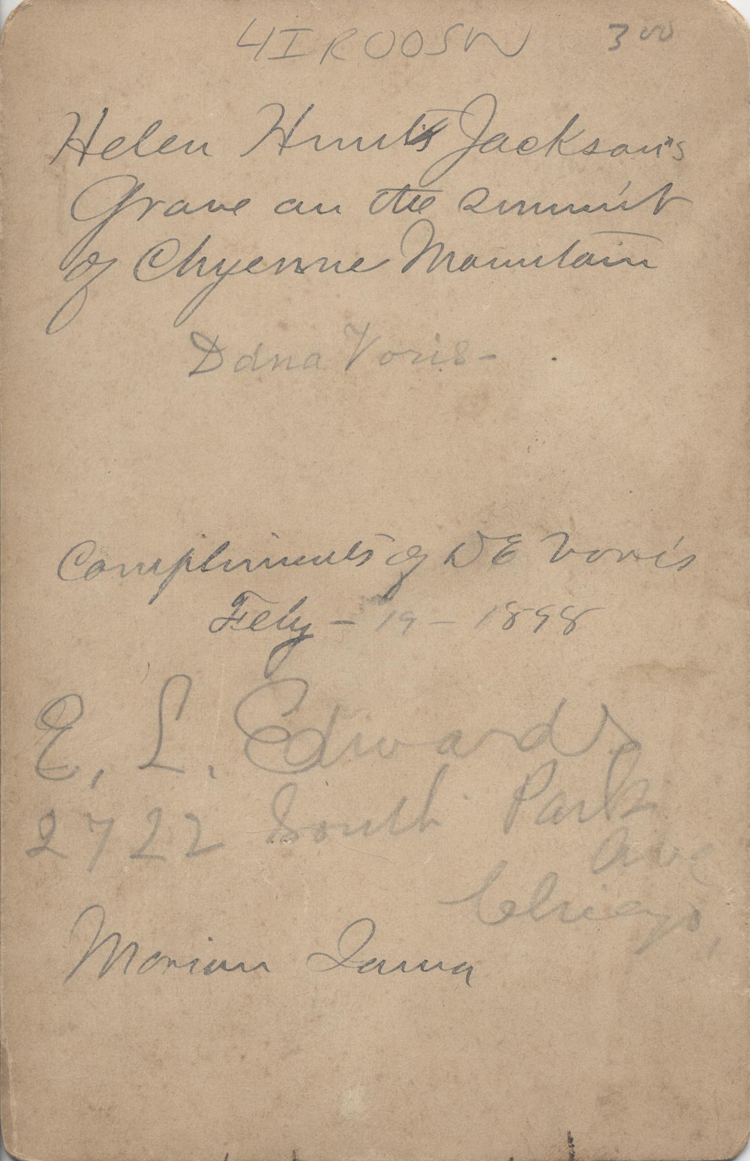 4IROOSW 3 00
Helen Hunt Jackson's
Grave on the summit
of Chyenne Mountain
Edna Voris-
Compliments of D E Voris
Feby - 19 - 1898
E. L. Edwards
2722 South Park
Ave
Chicago,
Marion Iowa